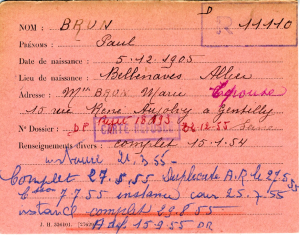 D
NOM : BRUN R 11110
PRÉNOMS : Paul
Date de naissance : 5.12.1905
Lieu de naissance : Bellenaves Allier
Adresse : Mme BRUN Marie Epouse
15 rue René à Gentilly
N° Dossier : DP CARTE DÉPORTÉ 12-55
Renseignements divers : complet 15.1.54
instance 21.3.55
Complet 27.8.55 Duplicata A.R. le 27.5
7.7.55 instance 25.7.55
instance complet 29.8.55
J. H. A dep 15.9.55 DR